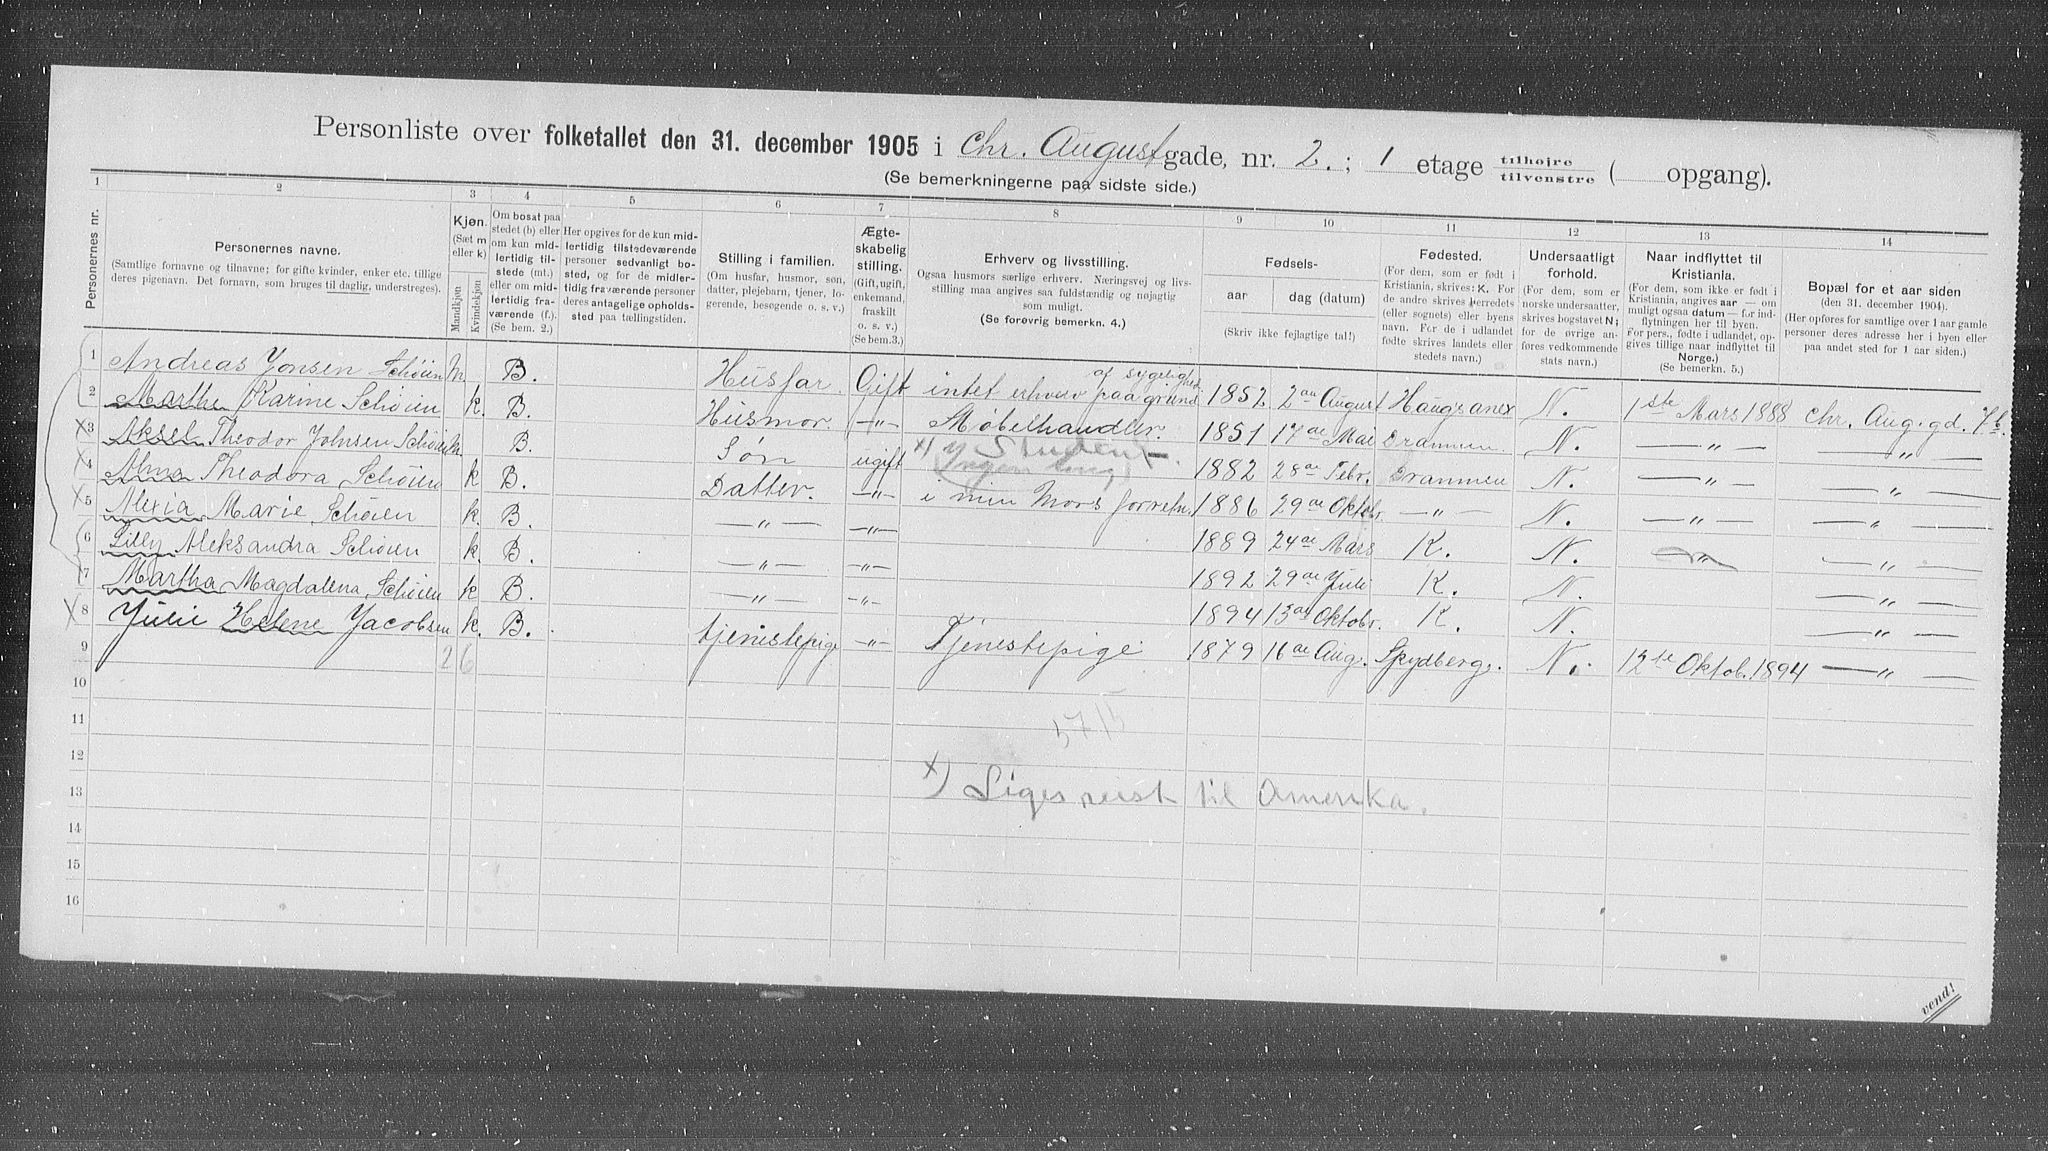 Personliste over folketallet den 31. december 1905 i Chr. Augustgade, nr. 2. ; 1 etage tilhøjre tilvenstre ( opgang).
(Se bemerkningerne paa sidste side.)
1 2 3 4 5 6 7 8 9 10 11 12 13 14
Personernes nr.
Personernes navne.
(Samtlige fornavne og tilnavne; for gifte kvinder, enker etc. tillige
deres pigenavn. Det fornavn, som bruges til daglig, understreges).
Kjøn.
(Sæt m
eller k)
Mandkjøn
Kvindekjøn
Om bosat paa
stedet (b) eller
om kun mid-
lertidig til-
stede (mt.)
eller om mid-
lertidig fra-
værende (f.).
(Se bem. 2.)
Her opgives for de kun mid-
lertidig tilstedeværende
personer sedvanligt bo-
sted, og for de midler-
tidig fraværende personer
deres antagelige opholds-
sted paa tællingstiden.
Stilling i familien.
(Om husfar, husmor, søn,
datter, plejebarn, tjener, lo-
gerende, besøgende o. s. v.)
Ægte-
skabelig
stilling.
(Gift, ugift,
enkemand,
fraskilt
o. s. v.)
(Se bem.3.)
Erhverv og livsstilling.
Ogsaa husmors særlige erhverv. Næringsvej og livs-
stilling maa angives saa fuldstændig og nøjagtig
som muligt.
(Se forøvrig bemerkn. 4.)
Fødsels-
aar dag (datum)
(Skriv ikke fejlagtige tal!)
Fødested.
(For dem, som er født i
Kristiania, skrives: K. For
de andre skrives herredets
(eller sognets) eller byens
navn. For de i udlandet
fødte skrives landets eller
stedets navn.)
Undersaatligt
forhold.
(For dem, som er
norske undersaatter,
skrives bogstavet N;
for de øvrige an-
føres vedkommende
stats navn.)
Naar indflyttet til
Kristiania.
(For dem, som ikke er født i
Kristiania, angives aar — om
muligt ogsaa datum — for ind-
flytningen her til byen.
For pers., fødte i udlandet, op-
gives tillige naar indflyttet til
Norge.)
(Se bemerkn. 5.)
Bopæl for et aar siden
(den 31. december 1904).
(Her opføres for samtlige over 1 aar gamle
personer deres adresse her i byen eller
paa andet sted for 1 aar siden.)
1 Andreas Jonsen Schøien m B. Husfar. Gift intet erhverv paa grund af sygelighed. 1852. 2 August Haugsanex N. 1ste Mars 1888 Chr. Aug. gd. 7 b.
2 Marthe Karine Schøien k. B. Husmor. —„— Møbelhandler. 1851 17de Mai Drammen N. —„— —„—
x3 Aksel Theodor Johnsen Schøien m. B. Søn ugift x) Student. 1882 28de Febr. Drammen N. —„— —„—
4 Alma Theodora Schøien k B. Datter. —„— i min Mors forretn. 1886 29de Oktobr. —„— N. —„— —„—
5 Alexia Marie Schøien k. B. —„— —„— 1889 24de Mars K. N. —„— —„—
6 Lilly Aleksandra Schøien k. B. —„— —„— 1892 29de Juli K. N. —„—
7 Martha Magdalena Schøien k B. —„— —„— 1894 13de Oktobr. K. N. —„—
x8 Julie Helene Jacobsen k. B. tjenestepige —„— Tjenestepige 1879 16de Aug. Spydberg. N. 12te Oktob. 1894 —„—
9 2 6
10
11
12
x) Liges reist til Amerika.
13
14
15
16
vend!